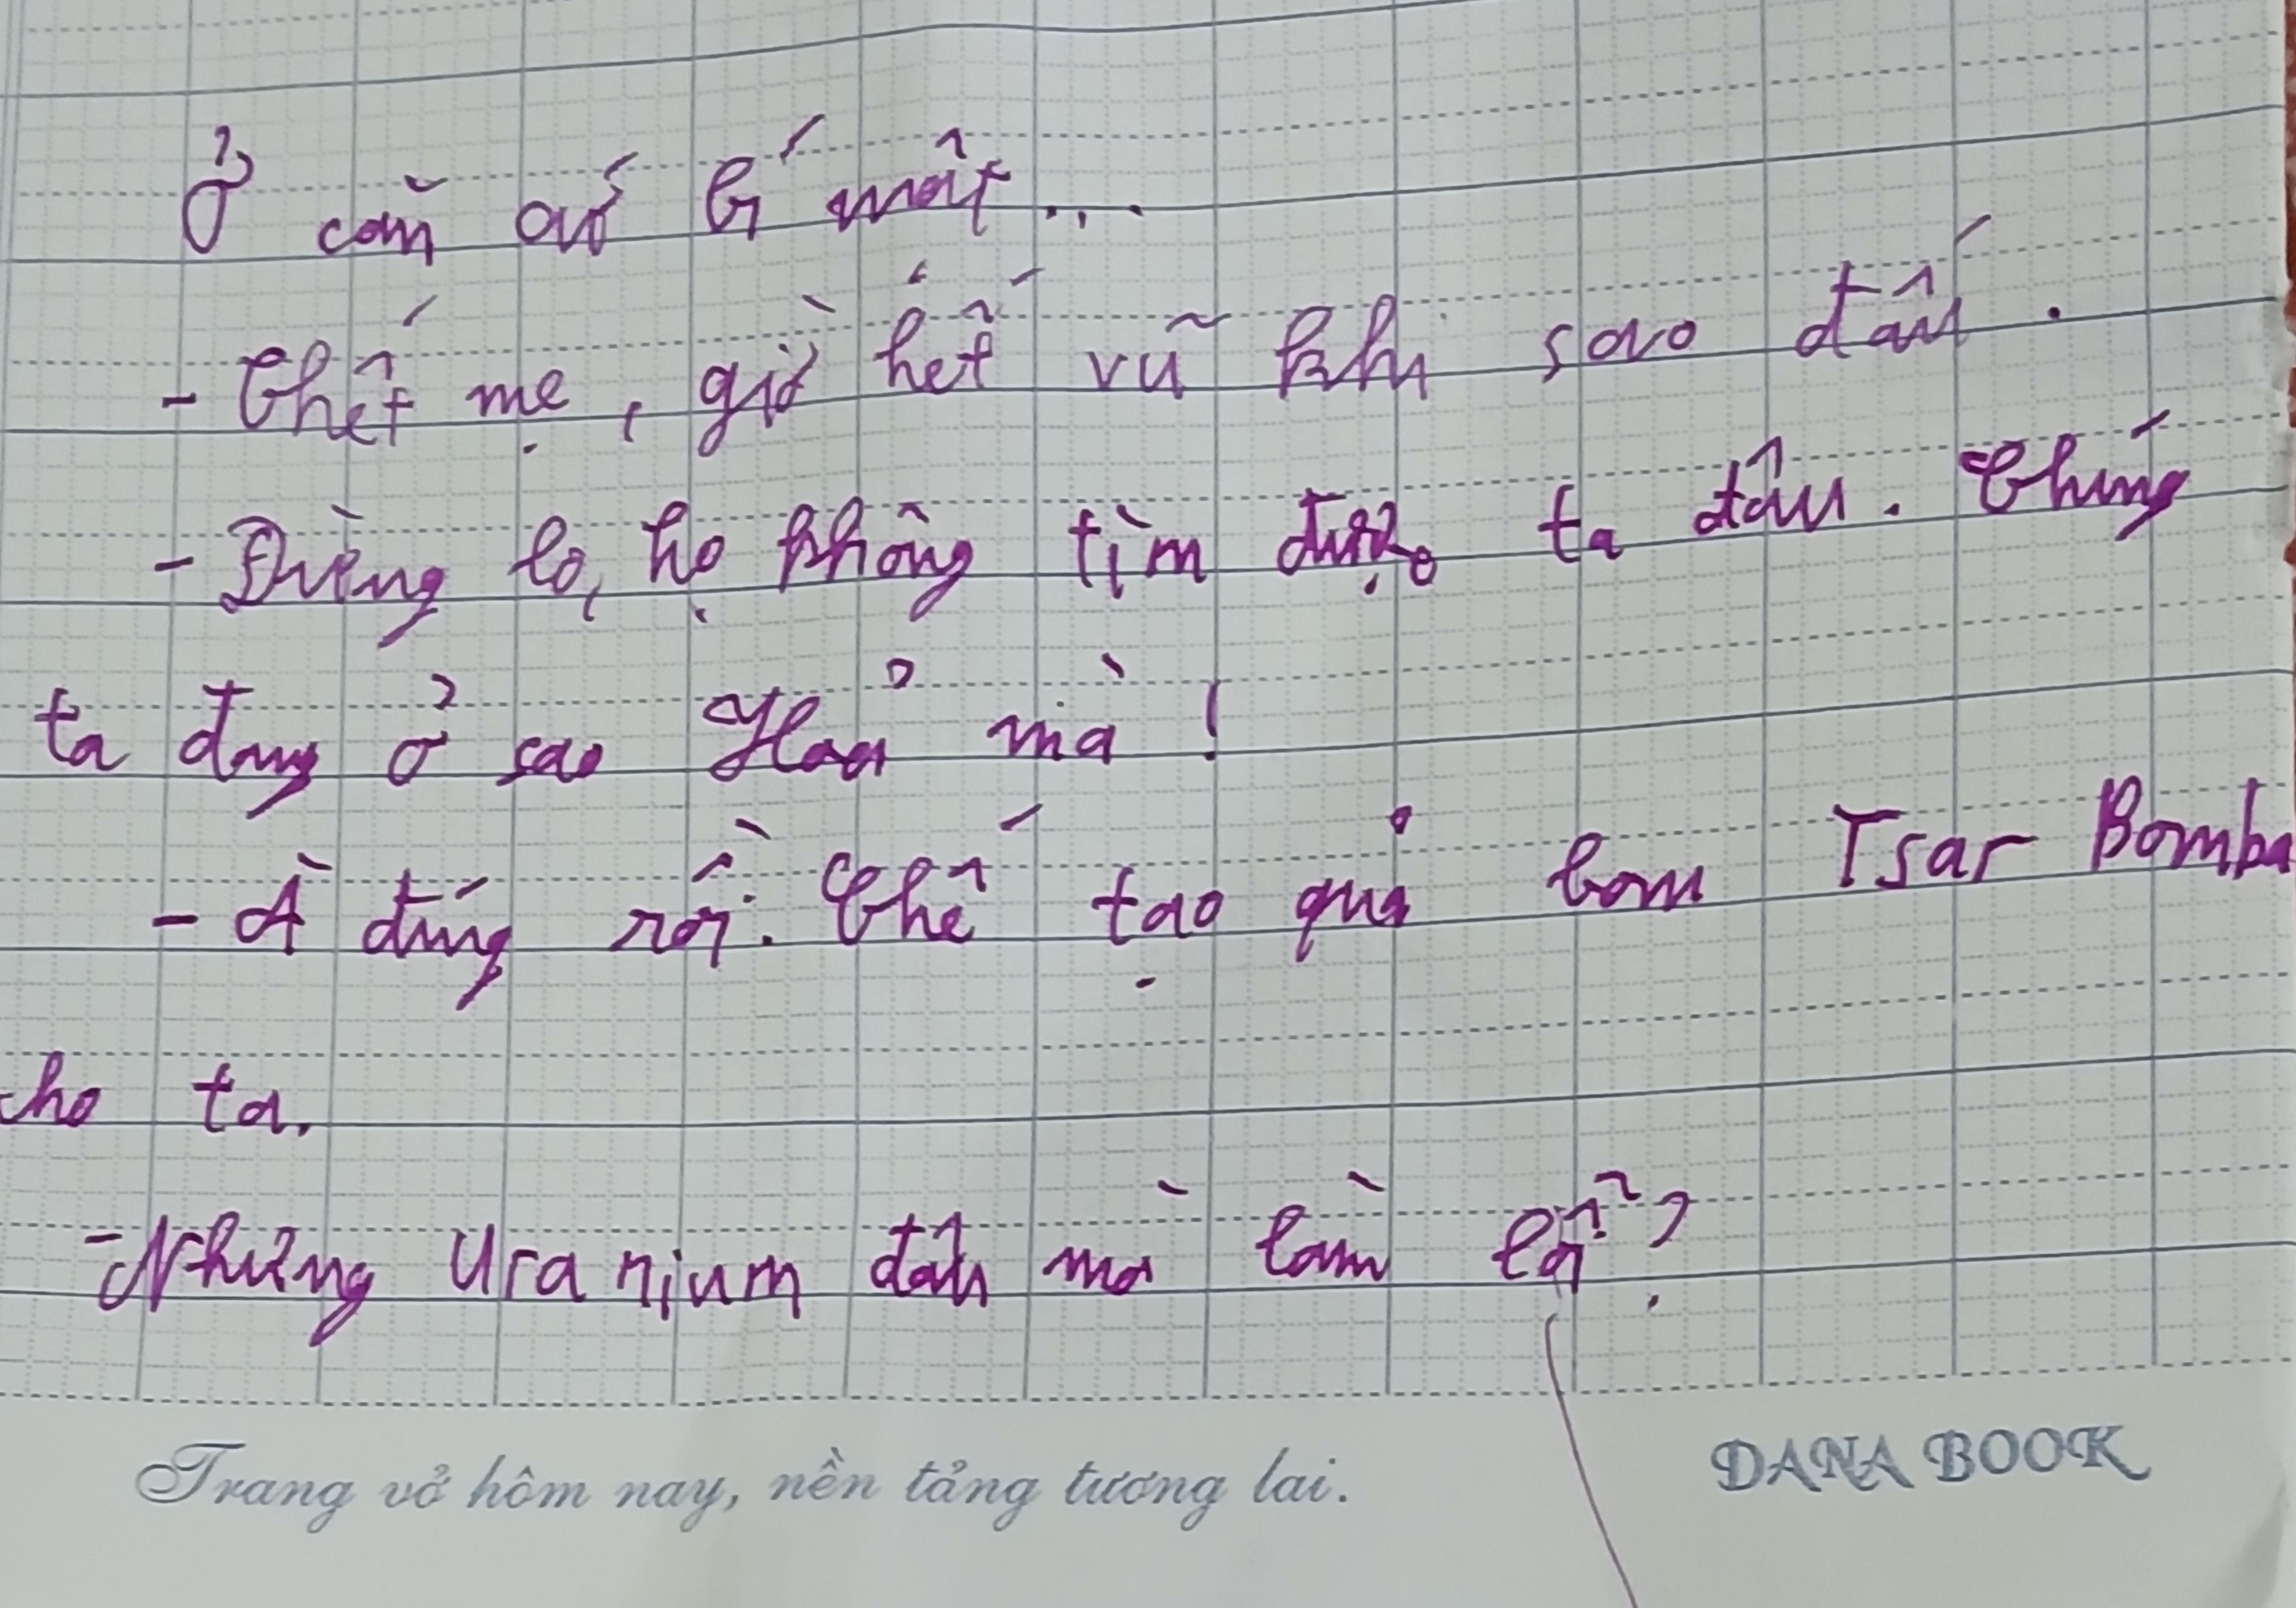 Ở căn cứ bí mật...
- Chết mẹ, giờ hết vũ khí sao đấu.
- Đừng lo, họ không tìm được ta đâu. Chúng
ta đang ở sao Hoả mà!
- À đúng rồi. Chế tạo quả bom Tsar Bomba
cho ta.
- Nhưng Uranium đâu mà làm
Trang vở hôm nay, nền tảng tương lai.
DANA BOOK